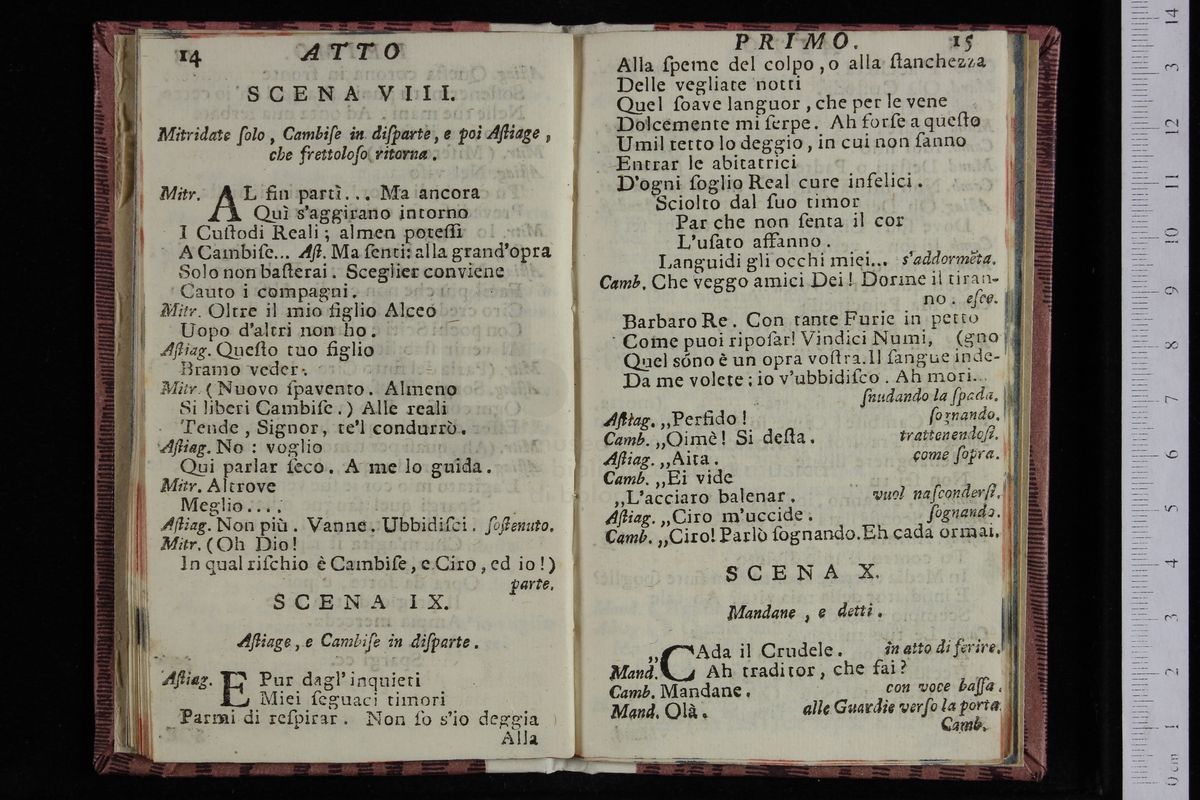 14 ATTO
SCENA VIII.
Mitridate ſolo, Cambiſe in diſparte, e poi Aſtiage,
che frettoloſo ritorna.
Mitr. AL fin partì... Ma ancora
Quì s'aggirano intorno
I Cuſtodi Reali; almen poteſſi
A Cambiſe... Aſt. Ma ſenti: alla grand'opra
Solo non baſterai. Sceglier conviene
Cauto i compagni.
Mitr. Oltre il mio figlio Alceo
Uopo d'altri non ho.
Aſtiag. Queſto tuo figlio
Bramo veder.
Mitr. (Nuovo ſpavento. Almeno
Si liberi Cambiſe.) Alle reali
Tende, Signor, te'l condurrò.
Aſtiag. No: voglio
Qui parlar ſeco. A me lo guida.
Mitr. Altrove
Meglio....
Aſtiag. Non più. Vanne. Ubbidiſci. ſoſtenuto.
Mitr. (Oh Dio!
In qual riſchio è Cambiſe, e Ciro, ed io!)
parte.
SCENA IX.
Aſtiage, e Cambiſe in diſparte.
Aſtiag. E Pur dagl'inquieti
Miei ſeguaci timori
Parmi di reſpirar. Non ſo s'io deggia
Alla
PRIMO. 15
Alla ſpeme del colpo, o alla ſtanchezza
Delle vegliate notti
Quel ſoave languor, che per le vene
Dolcemente mi ſerpe. Ah forſe a queſto
Umil tetto lo deggio, in cui non ſanno
Entrar le abitatrici
D'ogni ſoglio Real cure infelici.
Sciolto dal ſuo timor
Par che non ſenta il cor
L'uſato affanno.
Languidi gli occhi miei... s'addormẽta.
Camb. Che veggo amici Dei! Dorme il tiran-
no. eſce.
Barbaro Re. Con tante Furie in petto
Come puoi ripoſar! Vindici Numi, (gno
Quel sóno è un opra voſtra. Il ſangue inde-
Da me volete; io v'ubbidiſco. Ah mori...
ſnudando la ſpada.
Aſtiag. „Perfido! ſognando.
Camb. „Oimè! Si deſta. trattenendoſi.
Aſtiag. „Aita. come ſopra.
Camb. „Ei vide
„L'acciaro balenar. vuol naſconderſi.
Aſtiag. „Ciro m'uccide. ſognando.
Camb. „Ciro! Parlò ſognando. Eh cada ormai.
SCENA X.
Mandane, e detti.
„CAda il Crudele. in atto di ferire.
Mand. Ah traditor, che fai?
Camb. Mandane. con voce baſſa.
Mand. Olà. alle Guardie verſo la porta.
Camb.
0 cm 1 2 3 4 5 6 7 8 9 10 11 12 13 14